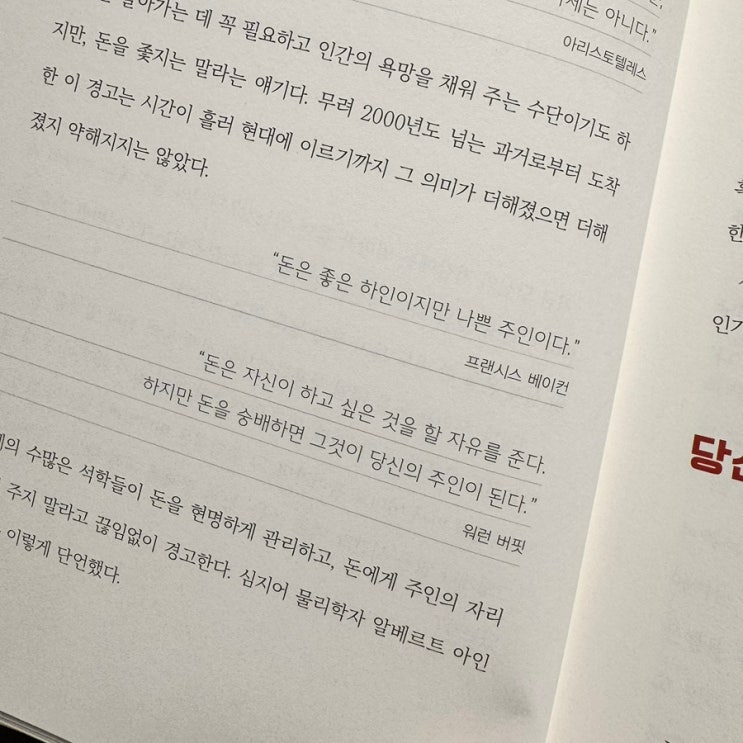 아니다."
아리스토텔레스
살아가는 데 꼭 필요하고 인간의 욕망을 채워 주는 수단이기도 하
지만, 돈을 좇지는 말라는 얘기다. 무려 2000년도 넘는 과거로부터 도착
한 이 경고는 시간이 흘러 현대에 이르기까지 그 의미가 더해졌으면 더해
졌지 약해지지는 않았다.
"돈은 좋은 하인이지만 나쁜 주인이다."
프랜시스 베이컨
"돈은 자신이 하고 싶은 것을 할 자유를 준다.
하지만 돈을 숭배하면 그것이 당신의 주인이 된다."
워런 버핏
수많은 석학들이 돈을 현명하게 관리하고, 돈에게 주인의 자리
주지 말라고 끊임없이 경고한다. 심지어 물리학자 알베르트 아인
이렇게 단언했다.
한
인기